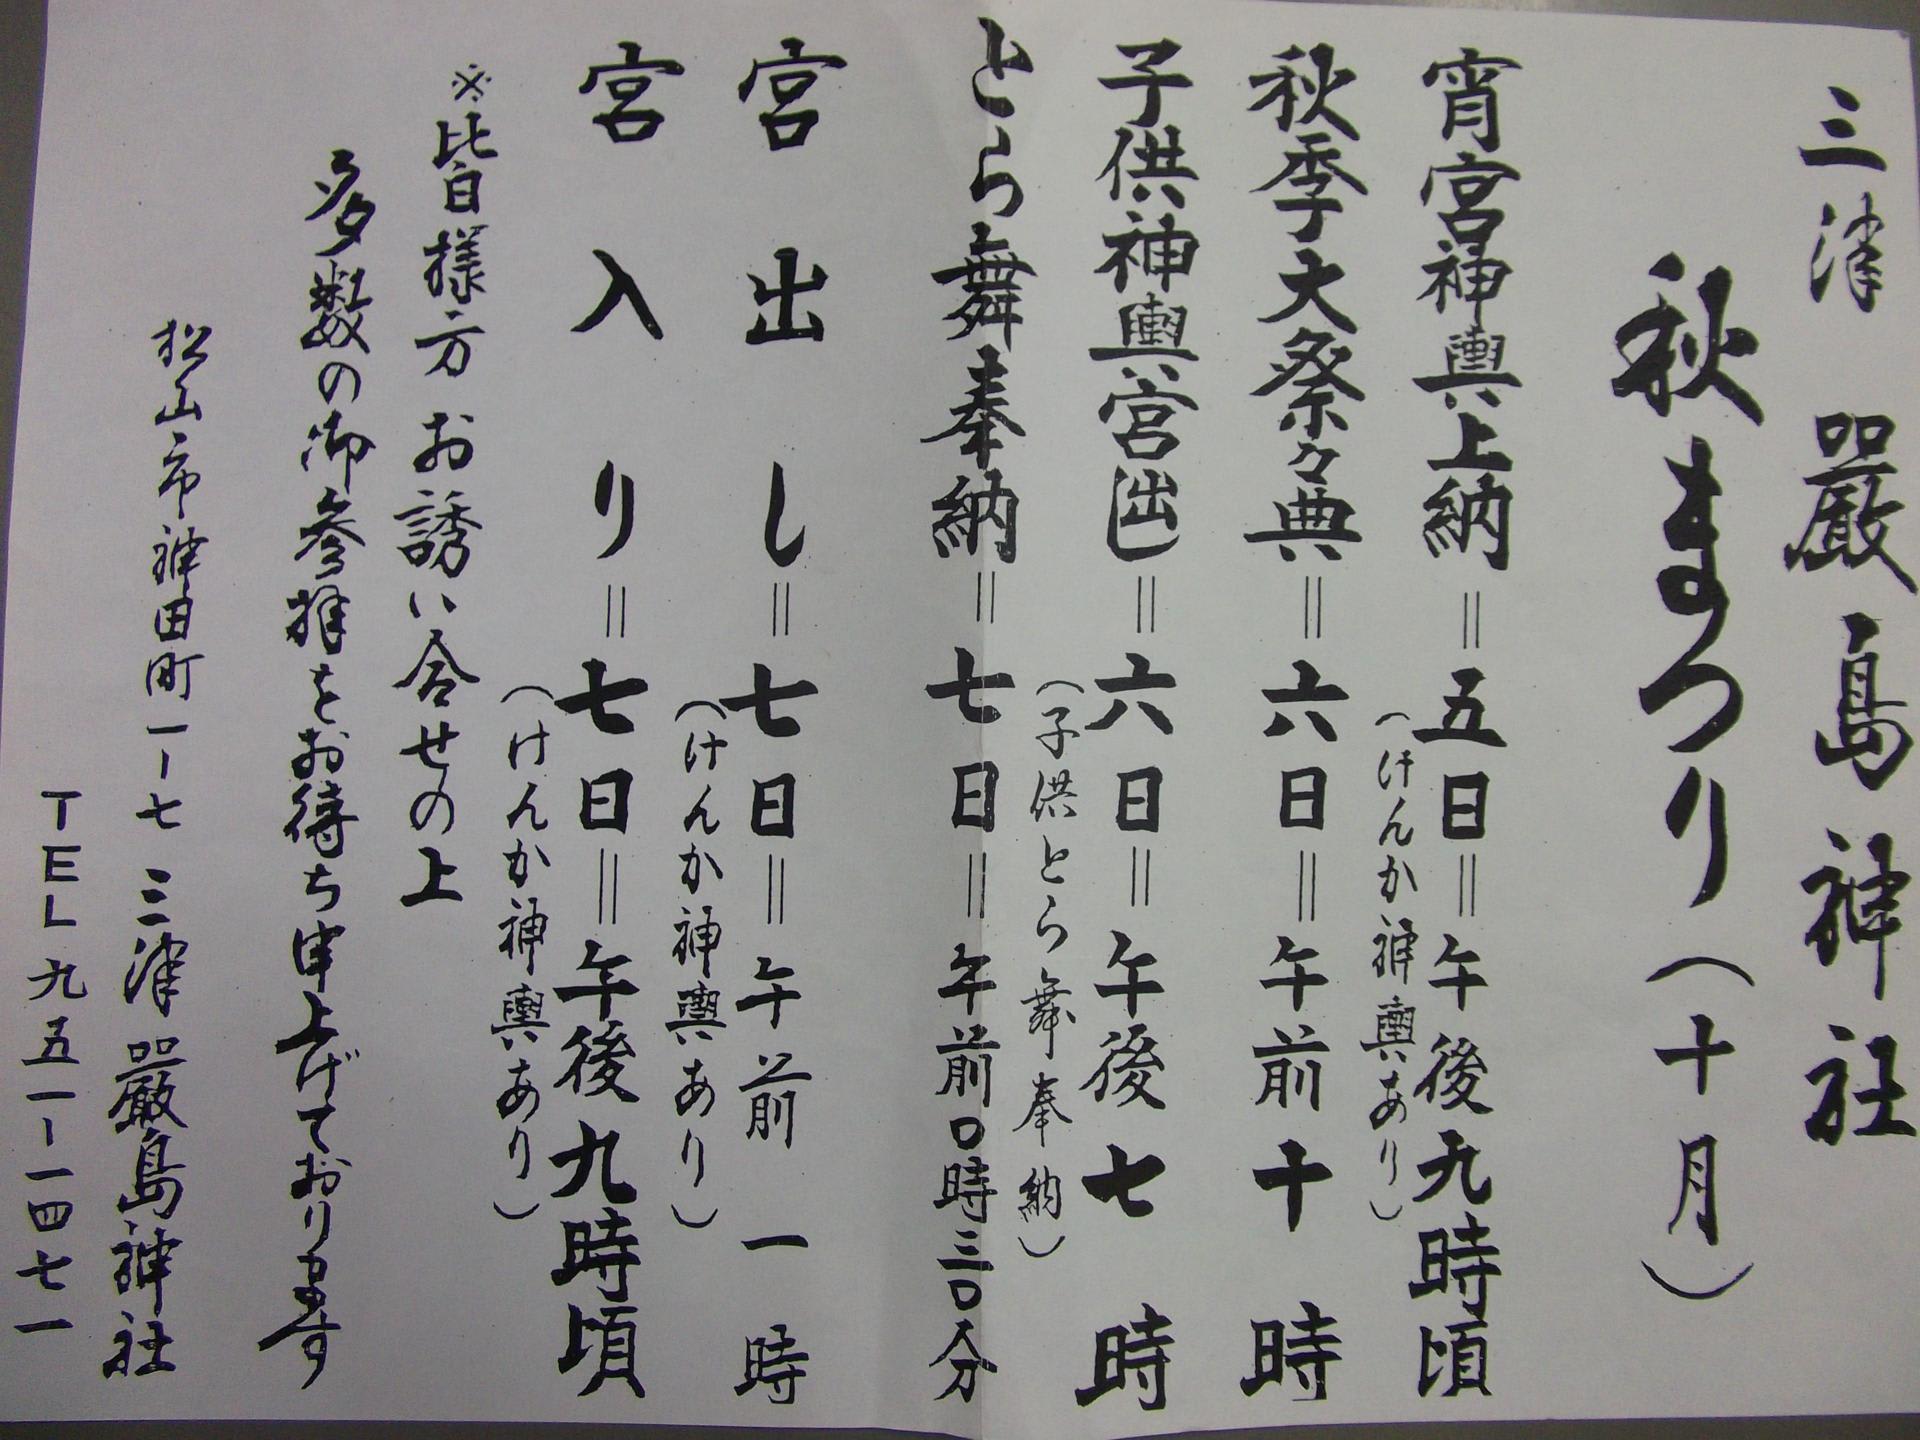 三津 嚴島神社
秋まつり(十月)
宵宮神輿上納=五日=午後九時頃
(けんか神輿あり)
秋季大祭々典=六日=午前十時
子供神輿宮出し=六日=午後七時
(子供とら舞奉納)
とら舞奉納=七日=午前〇時三〇分
宮出し=七日=午前一時
(けんか神輿あり)
宮入り=七日=午後九時頃
(けんか神輿あり)
※皆様方お誘い合せの上
多数の御参拝をお待ち申上げております
松山市神田町一ー七 三津嚴島神社
TEL九五一ー一四七一